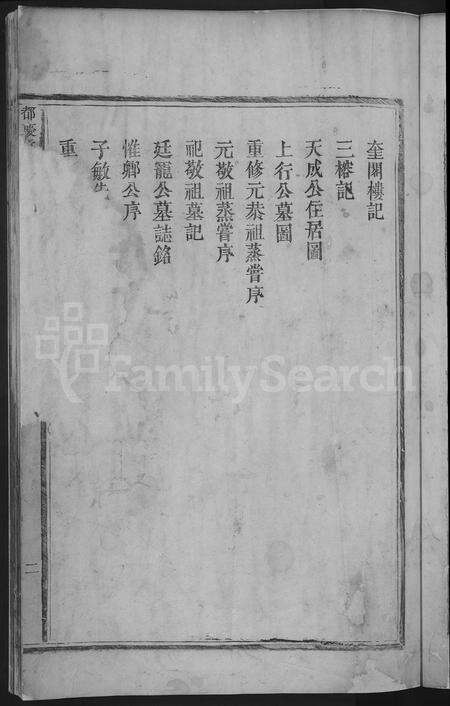 奎閣樓記
三榕記
天成公住居圖
上行公墓圖
重修元恭祖蒸嘗序
元敬祖蒸嘗序
祀敬祖墓記
廷寵公墓誌銘
惟卿公序
子敏先
重
都慶
二
FamilySearch